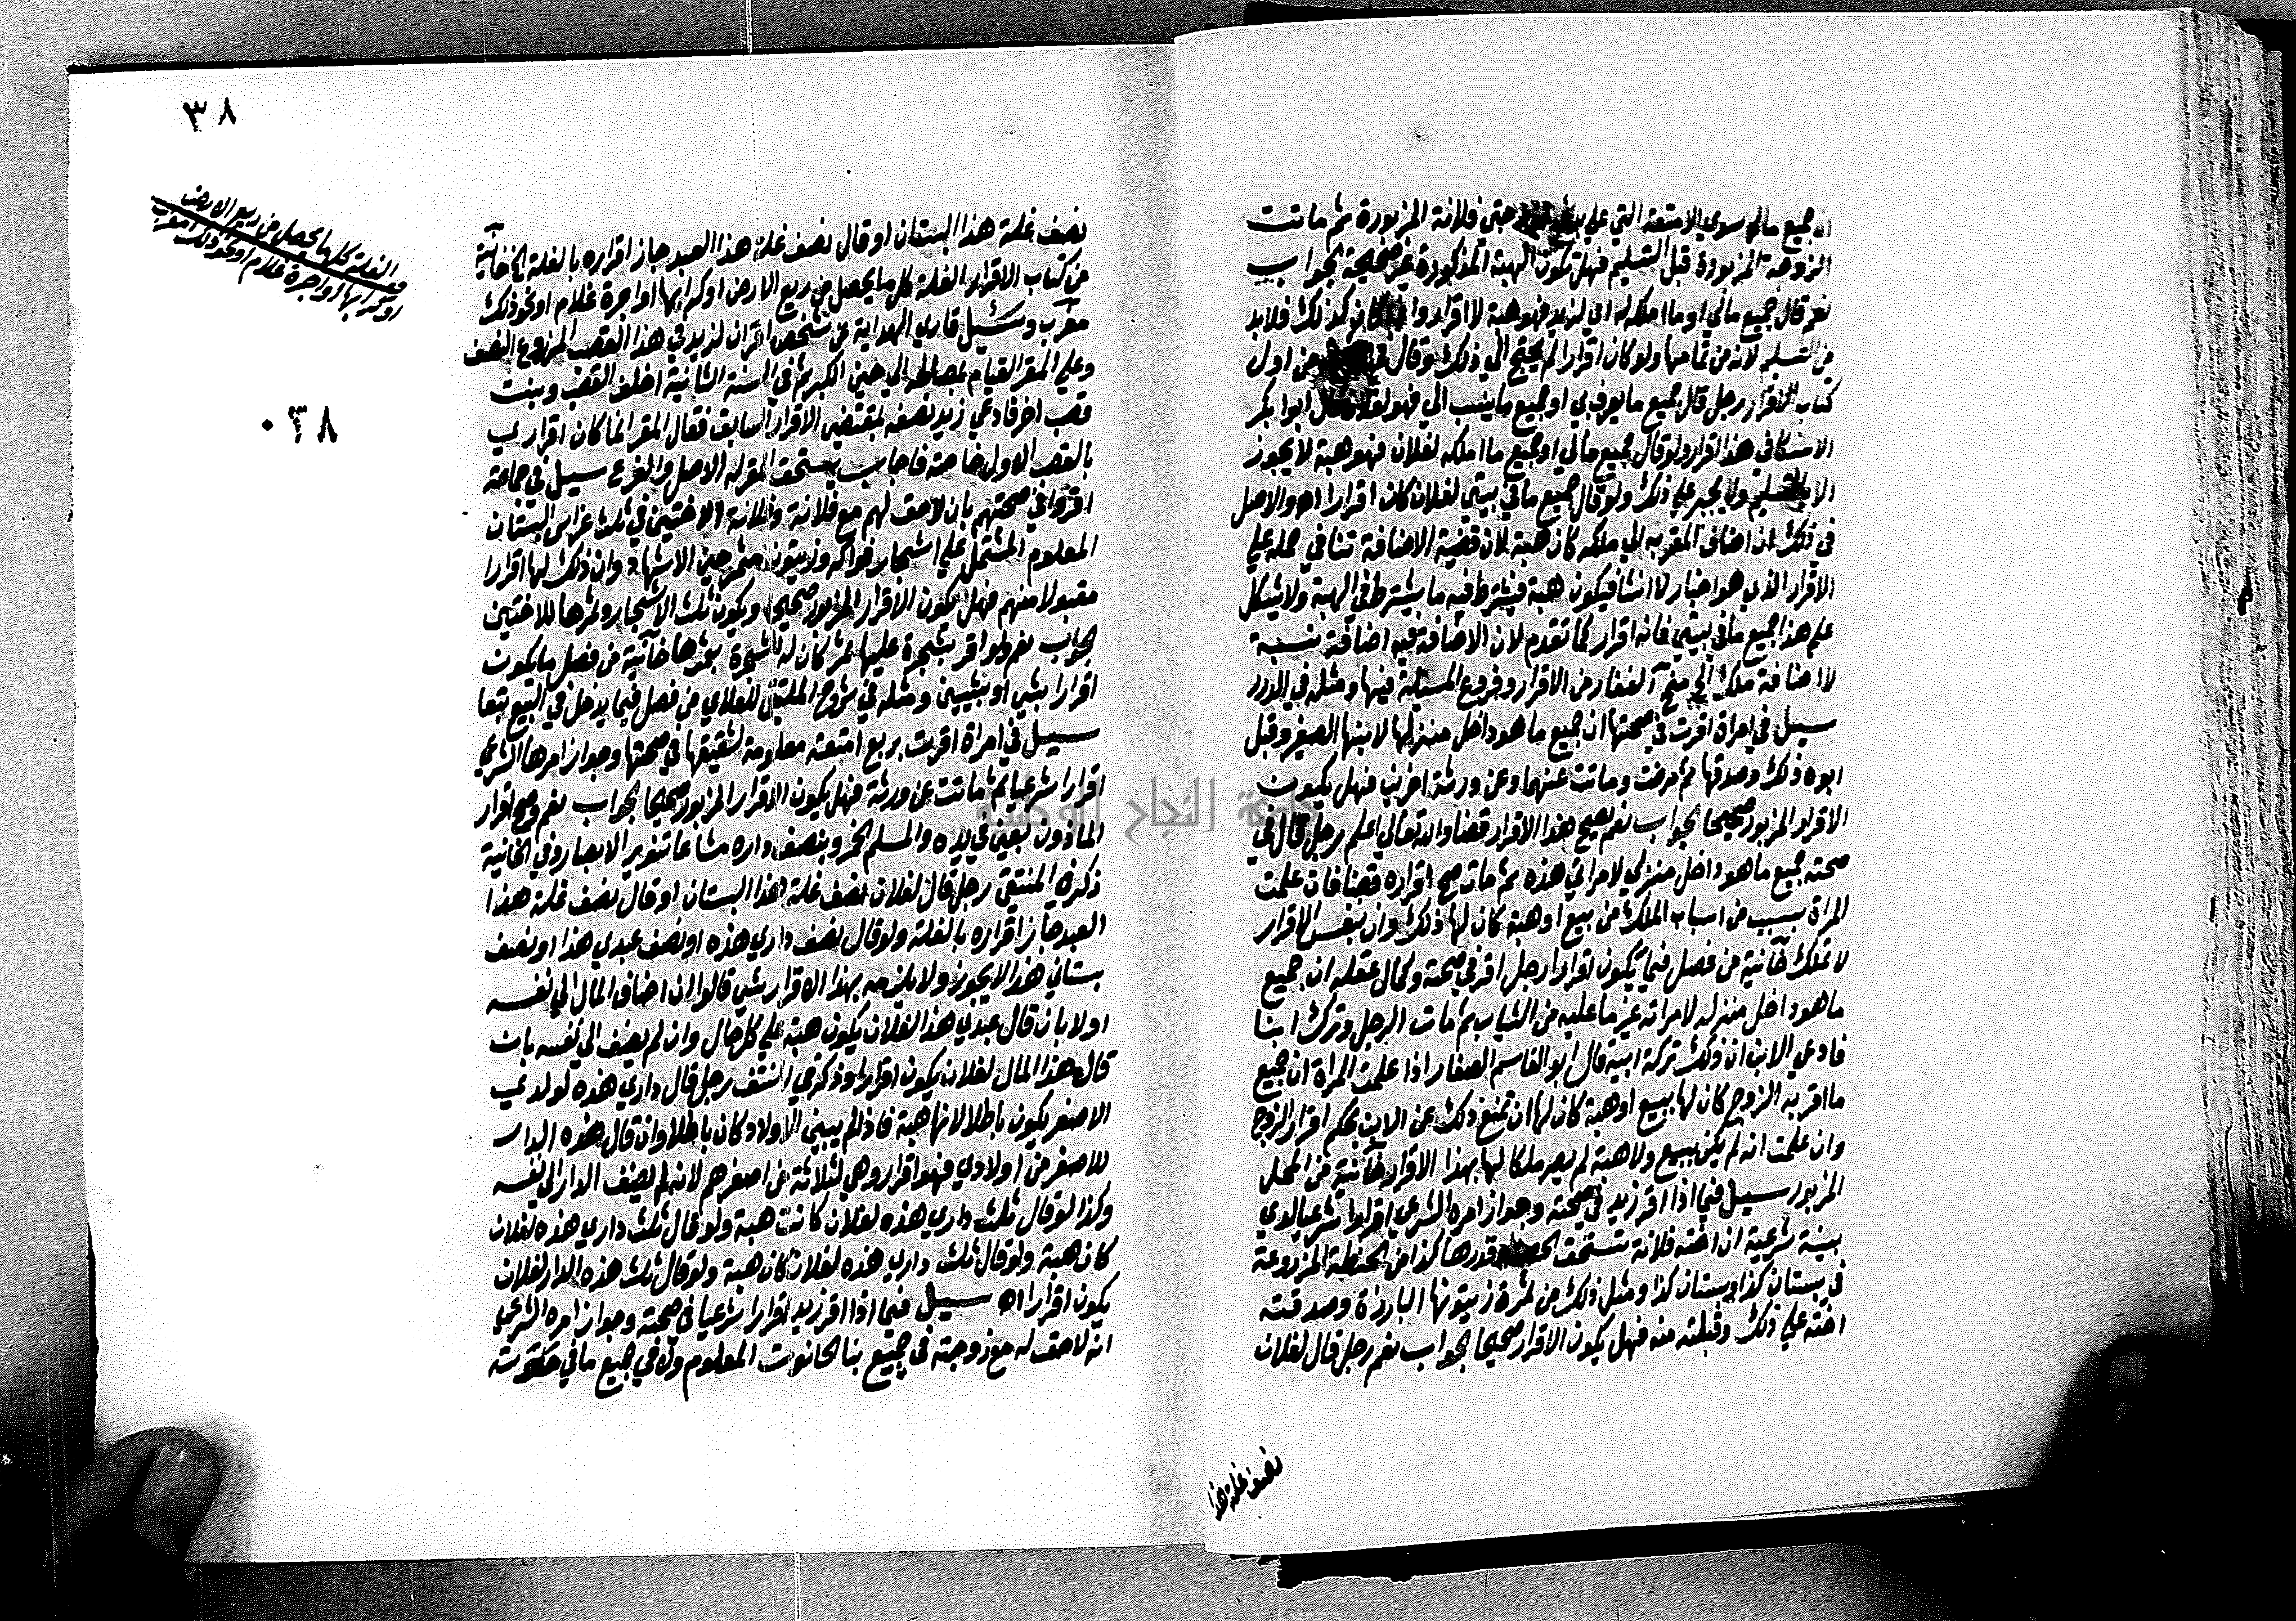 ان جميع مالي سوي الامتعة التي علي حتي فلانة المزبورة ثم ماتت
الزوجة المزبورة قبل التسليم فهل تكون الهبة المذكورة غير صحيحة الجواب
نعم قال جميع مالي او ما املكه لفلان فهو هبة لا اقرار وان كان كذلك فلابد
من التسليم لانه من تمامها ولو كان اقرارا لم يحتج الي ذلك وقال في من اول
كتاب الاقرار رجل قال جميع ما يعرف بي او جميع ما ينسب الي فهو لفلان قال ابو بكر
الاسكافي هذا اقرار ولو قال جميع مالي او جميع ما املكه لفلان فهو هبة لا يجوز
الا بالتسليم ولا يجبر علي ذلك ولو قال جميع ما في بيتي لفلان كان اقرارا اه والاصل
في ذلك ان اضاف المقر به الي ملكه كان هبة لان قضية الاضافة تنافي حمله علي
الاقرار الذي هو اخبار لا انشا فيكون هبة فيشترط فيه ما يشترط في الهبة ولا يشكل
علي هذا جميع ما في بيتي فانه اقرار كما تقدم لان الاضافة فيه اضافة نسبة
لا اضافة ملك الي منح الغفار من الاقرار وفروع المسئلة فيها ومثله في الدرر
سيل في امراة اقرت في صحتها ان جميع ما هو داخل منزلها لابنها الصغير وقبل
ابوه ذلك وصدقها ثم مرضت وماتت عنهما وعن ورثة اخرين فهل يكون
الاقرار المزبور صحيحا الجواب نعم يصح هذا الاقرار قضا والله تعالي اعلم رجل قال في
صحته جميع ما هو داخل منزلي لامراتي هذه ثم مات صح اقراره قضا فان علمت
المراة بسبب من اسباب الملك من بيع او هبة كان لها ذلك وان بنفس الاقرار
لا تملك خانية من فصل فيما يكون اقرارا رجل اقر في صحته وكمال عقله ان جميع
ما هو داخل منزله لامراته غير ما عليه من الثياب ثم مات الرجل وترك ابنا
فادعي الابن ان ذلك تركة ابيه قال ابو القاسم الصفار اذا علمت المراة ان جميع
ما اقر به الزوج كان لها ببيع او هبة كان لها ان تمنع ذلك عن الابن بحكم اقرار الزوج
وان علمت انه لم يكن ببيع ولا هبة لم يصر ملكا لها بهذا الاقرار خانية من المحل
المزبور سيل فيما اذا اقر زيد في صحته وجواز امره الشرعي اقرارا شرعيا لدي
بينة شرعية ان اخته فلانة تستحق قدرها كذا من الحنطة المزروعة
في بستان كذا وبستان كذا ومثل ذلك من ثمرة زيتونها البارزة وصدقته
اخته علي ذلك وقبلته منه فهل يكون الاقرار صحيحا الجواب نعم رجل قال لفلان
نصف غلة هذا
٣٨
الغلة كلها ما يحصل من ريع الارض
او كرايها او اجرة غلام او نحو ذلك مغرب
٠٣٨
نصف غلة هذا البستان او قال نصف غلة هذا العبد جاز اقراره بالغلة خانية
من كتاب الاقرار الغلة كل ما يحصل من ريع الارض او كرايها او اجرة غلام او نحو ذلك
مغرب وسئل قاري الهداية عن شخص اقر ان لزيد في هذا القصب المزروع النصف
وعلي المقر القيام بمصالحه الي حين الكبر ثم في السنة الثانية اخلف القصب ونبت
قصب اخر فادعي زيد نصفه بمقتضي الاقرار السابق فقال المقر انما كان اقراري
بالقصب الاول خاصة فاجاب يستحق المقر له الاصل والفرع سيل في جماعة
اقروا في صحتهم بان لا حق لهم مع فلانة وفلانة الاختين في ثلث غراس البستان
المعلوم المشتمل علي اشجار فواكه وزيتون مثمر حين الاشهاد وان ذلك لها اقرارا
مقبولا منهم فهل يكون الاقرار المزبور صحيحا ويكون ثلث الاشجار وثمرها للاختين
الجواب نعم ولو اقر بشجرة عليها ثمر كان له الشجرة بثمرها خانية من فصل ما يكون
اقرارا بشي او بشيين ومثله في شرح الملتقي للعلاي من فصل فيما يدخل في البيع تبعا
سيل في امراة اقرت بربع امتعة معلومة لشقيقها في صحتها وجواز امرها الشرعي
اقرارا شرعيا ثم ماتت عن ورثة فهل يكون الاقرار المزبور صحيحا الجواب نعم وصح اقرار
الماذون بعين في يده والمسلم بخمر وبنصف داره مشاعا تنوير الابصار وفي الخانية
ذكر في المنتقي رجل قال لفلان نصف غلة هذا البستان او قال نصف غلة هذا
العبد جاز اقراره بالغلة ولو قال نصف داري هذه او نصف عبدي هذا او نصف
بستاني هذا لا يجوز ولا يلزمه بهذا الاقرار شي قالوا ان اضاف المال الي نفسه
اولا بان قال عبدي هذا لفلان يكون هبة علي كل حال وان لم يضف الي نفسه بان
قال هذا المال لفلان يكون اقرارا وذكر في المنتقي رجل قال داري هذه لولدي
الاصغر يكون باطلا لانها هبة فاذا لم يبين الاولاد كان باطلا وان قال هذه الدار
للاصغر من اولادي فهو اقرار وهي لثلاثة من اصغرهم لانه لم يضف الدار الي نفسه
وكذا لو قال ثلث داري هذه لفلان كانت هبة ولو قال ثلث داري هذه لفلان
كان هبة ولو قال ثلث داري هذه لفلان كان هبة ولو قال ثلث هذه الدار لفلان
يكون اقرارا اه سيل فيما اذا اقر زيد اقرارا شرعيا في صحته وجواز امره الشرعي
انه لا حق له مع زوجته في جميع بنا الحانوت المعلوم ولا في جميع ما في
جامعة النجاح الوطنية